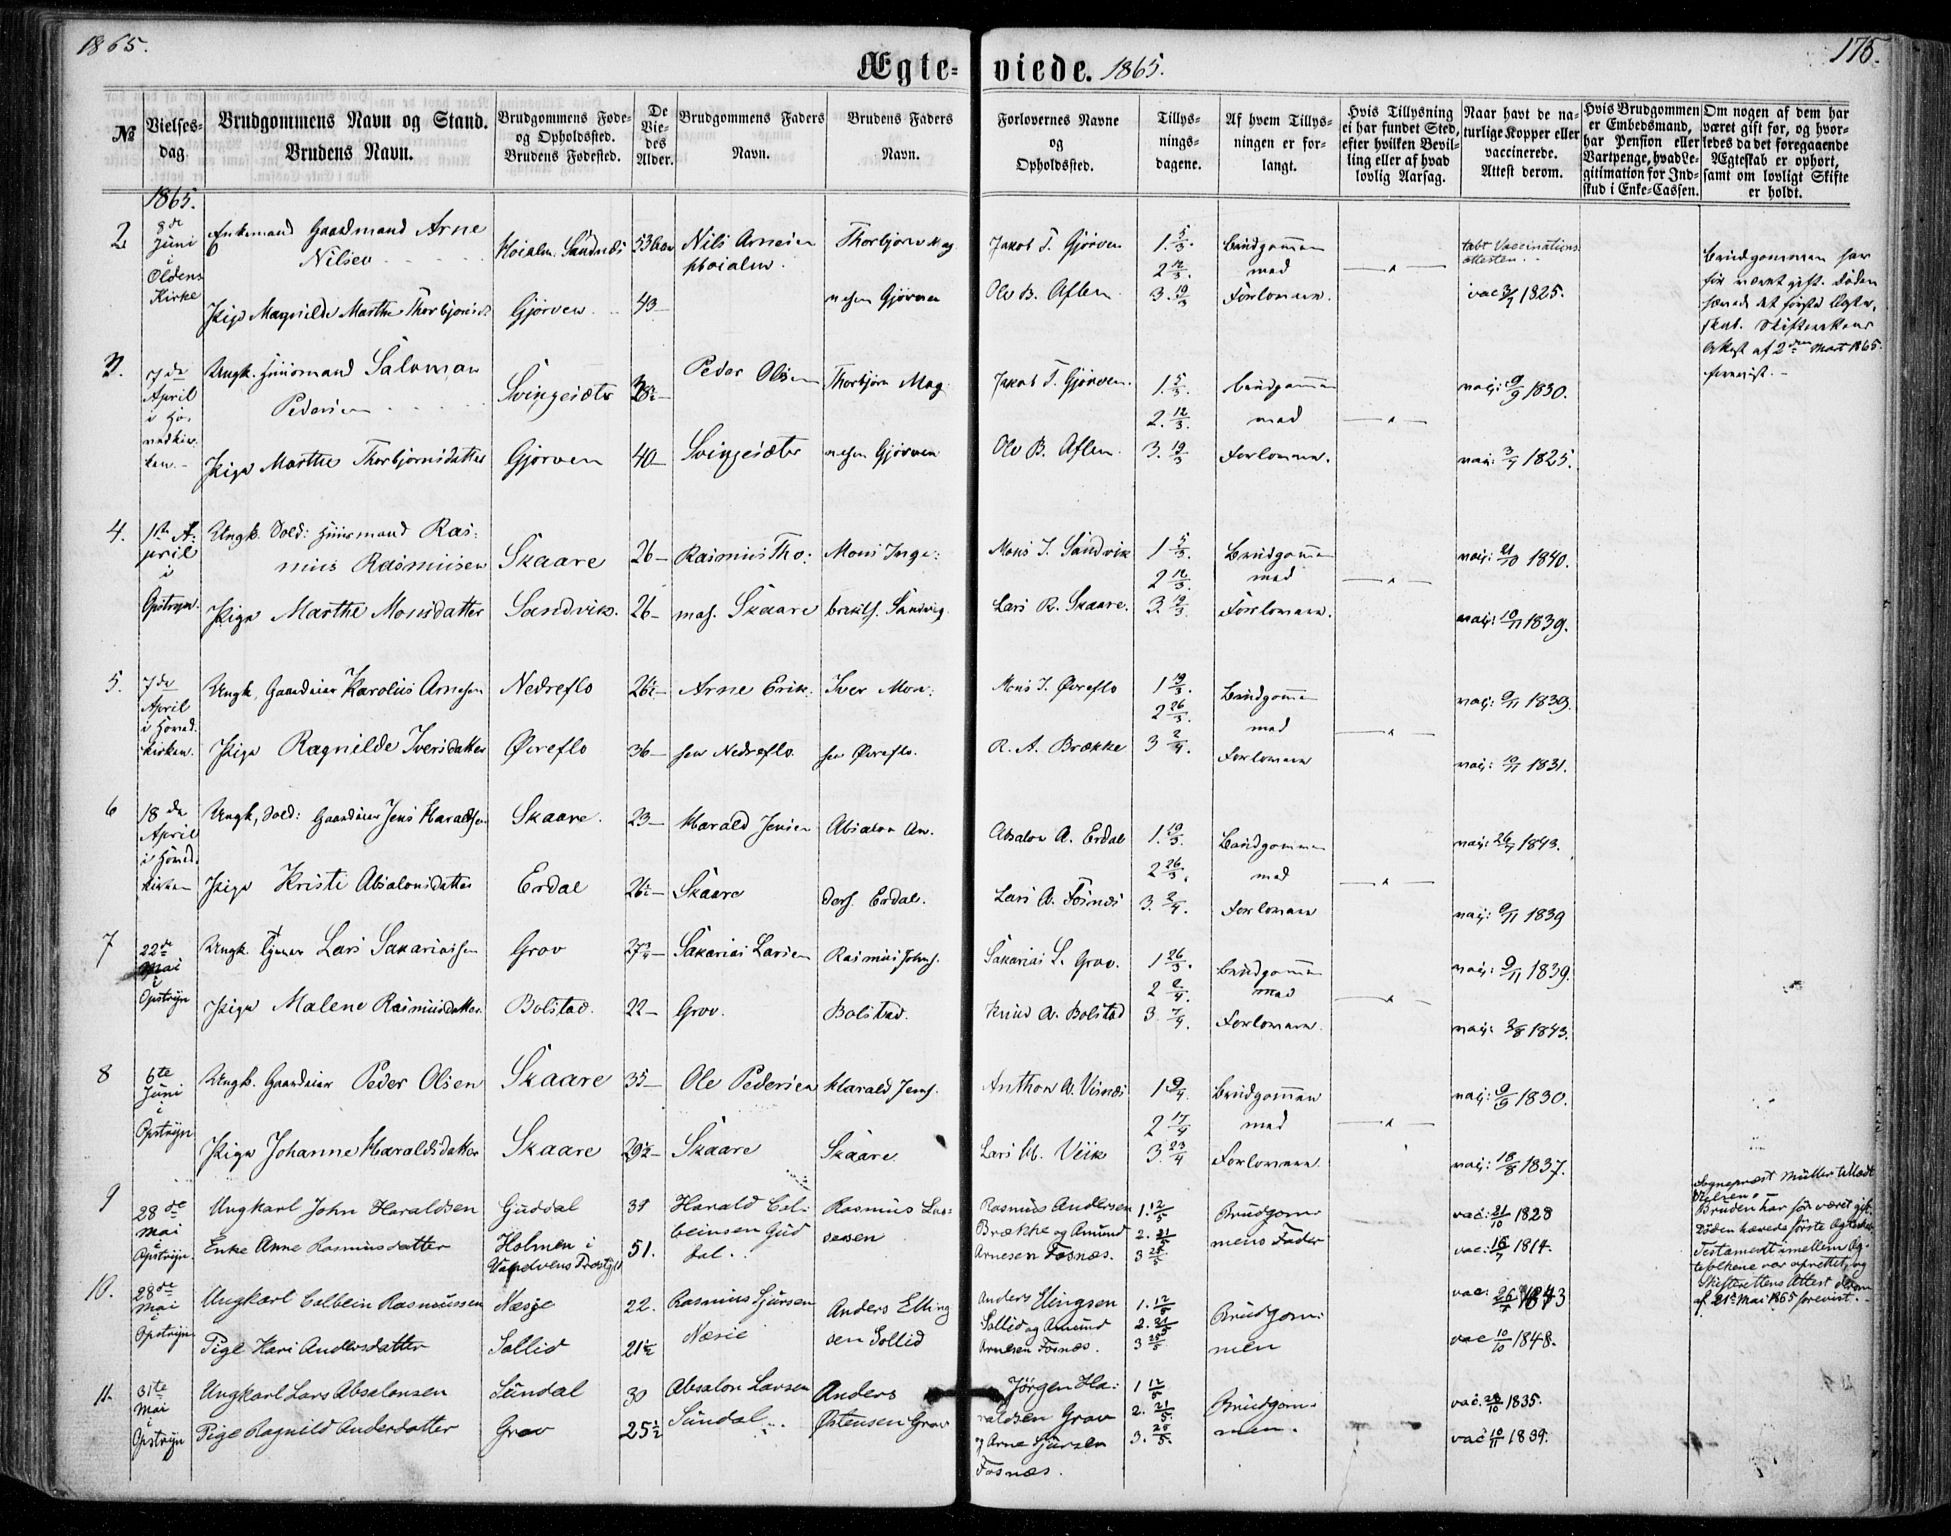 1865.
175.
Ægte-
viede. 1865.
№
Vielses-
dag
Brudgommens Navn og Stand.
Brudens Navn.
Brudgommens Føde-
og Opholdssted.
Brudens Fødested.
De
Vie-
des
Alder.
Brudgommens Faders
Navn.
Brudens Faders
Navn.
Forlovernes Navne
og
Opholdssted.
Tillys-
nings-
dagene.
Af hvem Tillys-
ningen er for-
langt.
Hvis Tillysning
ei har fundet Sted,
efter hvilken Bevil-
ling eller af hvad
lovlig Aarsag.
Naar havt de na-
turlige Kopper eller
vaccinerede.
Attest derom.
Hvis Brudgommen
er Embedsmand,
har Pension eller
Vartpenge, hvad Le-
gitimation for Ind-
skud i Enke-Cassen.
Om nogen af dem har
været gift før, og hvor-
ledes da det foregaaende
Ægteskab er ophørt,
samt om lovligt Skifte
er holdt.
1865.
2
8de
Juni
i
Oldens
Kirke
Enkemand Gaardmand Arne
Nilsen
Pige Magnilde Marthe Thorbjørnsd
Hoialm. Sandnæs
Gjørven
53
43
Nils Arnesen
Hoialm.
Thorbjørn Mag
nesen Gjørven
Jakob T. Gjørven
Ole B. Aflem.
1. 5/3.
2 12/3.
3. 19/3
Brudgommen
med
Forloveren.
tabt Vaccinations
attesten.
vac 3/7 1825.
Brudgommen har
før været gift. Døden
hævede det første Ægte-
skab. Skifterettens
Attest af 2den Mart 1865
forevist.
3.
7de
April
i Ho-
vedkir-
ken.
Ungk. Huusmand Salomon
Pedersen
Pige Marthe Thorbjørnsdatter
Svingesæter
Gjørven
38½
40
Peder Olsen
Svingesæter
Thorbjørn Mag
nesen Gjørven
Jakob T. Gjørven.
Ole B. Aflem.
1. 5/3.
2. 12/3.
3. 19/3
Brudgommen
med
Forloveren.
vac: 9/9 1830.
vac: 3/7 1825.
4.
1ste A-
pril
i
Opstryn.
Ungk. Sold: Huusmand Ras-
mus Rasmussen
Pige Marthe Monsdatter
Skaare
Sandvik.
26
26
Rasmus Tho-
mas. Skaare
Mons Inge-
brektss. Sandvig
Mons J. Sandvik
Lars R. Skaare.
1 5/3.
2 12/3.
3. 19/3.
Brudgommen
med
Forloveren.
vac: 21/10 1840.
vac: 10/11 1839.
5.
7de
April
i Hoved-
kirken.
Ungk, Gaardeier Karolus Arnesen
Pige Ragnilde Iversdatter
Nedreflo
Øvreflo
26½
36
Arne Erik-
sen Nedreflo.
Iver Mon-
sen Øvreflo.
Mons I. Øvreflo
R. A. Brække
1 19/3.
2 26/3.
3 2/4.
Brudgommen
med
Forloveren
vac: 9/11 1839.
vac: 10/11 1831.
6
18de
April
i Hoved-
kirken
Ungk, Sold: Gaardeier Jens Haraldsen
Pige Kristi Absalonsdatter
Skaare.
Erdal
23
26½
Harald Jensen
Skaare
Absalon An-
ders. Erdal.
Absalon A. Erdal
Lars A. Fosnæs
1. 19/3.
2 26/3.
3. 2/4.
Brudgommen
med
Forloveren
vac: 26/7 1843.
vac: 9/11 1839
7
22de
Mai
i
Opstryn
Ungk. Tjener Lars Sakariassen
Pige Malene Rasmusdatter
Grov
Bolstad.
27¾
22
Sakarias Larsen
Grov.
Rasmus Johns.
Bolstad.
Sakarias L. Grov.
Knud A. Bolstad
1 26/3.
2 2/4.
3. 7/4.
Brudgommen
med
Forloveren.
vac: 9/11 1839.
vac: 3/8 1843.
8
6te
Juni
i
Opstryn
Ungk. Gaardeier Peder Olsen
Pige Johanne Haraldsdatter
Skaare
Skaare
35
29½
Ole Pedersen
Skaare
Harald Jens.
Skaare
Anthon A. Visnæs
Lars M. Viik
1 9/4.
2 17/4
3. 23/4
Brudgommen
med
Forloveren.
vac: 9/9 1830.
vac: 18/8 1837.
9
28de
Mai
i
Opstryn.
Ungkarl John Haraldsen
Enke Anne Rasmusdatter
Guddal
Holmen i
Præstgjeld
39
51.
Harald Col-
beinsen Gud
dal.
Rasmus Las-
sesen
Rasmus Andersen
Brække og Amund
Arnesen Fosnæs.
1. 12/5
2. 21/5
3 25/5
Brudgom-
mens Fader
vac: 21/10 1828
vac: 16/7 1814.
Sognepræst Müller tillod
Vielsen.
Bruden har før været gift.
Døden hævede første Ægteskab
Testament imellem Æg-
tefolkene var oprettet, og
Skifterettens Attest derom
af 21de Mai 1865 forevist.
10.
28de
Mai
i
Opstryn.
Ungkarl Colbein Rasmussen
Pige Kari Andersdatter
Næsje
Sollid
22.
21½
Rasmus Sjursen
Næsje
Anders Elling
sen Sollid
Anders Elingsen
Sollid og Amund
Arnesen Fosnæs.
1. 12/5
2. 21/5
3 25/5
Brudgom-
men
vac. 26/7 1843
vac 10/10 1848.
11.
31te
Mai
i
Opstryn
Ungkarl Lars Absalonsen
Pige Ragnild Andersdatter
Sundal
Grov
30
25½
Absalon Larsen
Sundal
Anders
Østensen Grov
Jørgen Ha-
raldsen Grov
og Arne Sjursen
Fosnæs.
1 12/5
2. 21/5.
3. 25/5.
Brudgom-
men.
vac. 28/10 1835.
vac 10/11 1839.